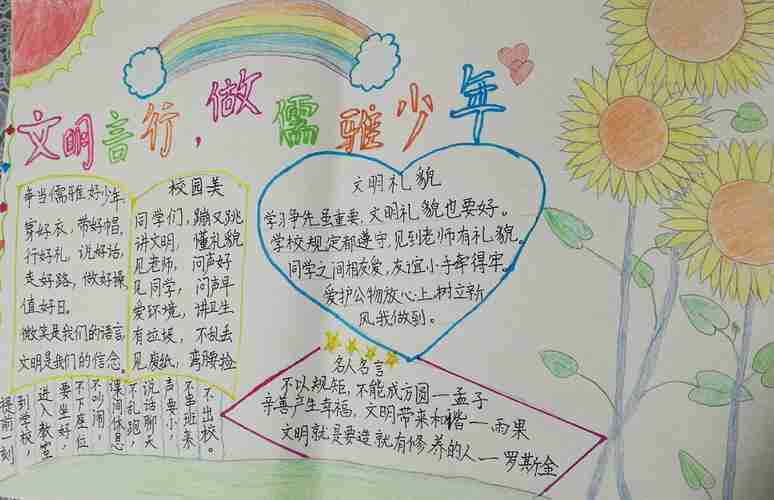 文明言行,做儒雅少年
争当儒雅好少年
穿好衣,带好帽,
行好礼,说好话,
走好路,做好操
值好日。
微笑是我们的语言
文明是我们的信念。
校园美
同学们,蹦又跳
讲文明,懂礼貌
见老师,问声好
见同学,问声早
爱环境,讲卫生
有垃圾,不乱丢
见废纸,弯腰捡
文明礼貌
学习争先虽重要,文明礼貌也要好。
学校规定都遵守,见到老师有礼貌。
同学之间相友爱,友谊小手牵得牢。
爱护公物放心上,树立新
风我做到。
提前一刻
到学校,
进入教室
要坐好,
不下座位
不吵闹,
课间休息
不乱跑,
说话聊天
声要小,
不串班来
不出校。
名人名言
不以规矩,不能成方圆—孟子
亲善产生幸福,文明带来和谐—雨果
文明就是要造就有修养的人—罗斯金